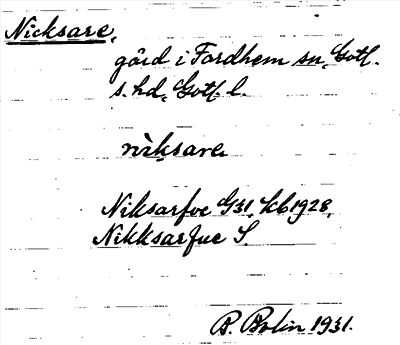 Nicksare,
gård i Fardhem sn, Gotl.
s. hd, Gotl. l.
nìksare
Niksarfve G31, Kb 1928,
Nikksarfue S.
B. Bolin 1931.